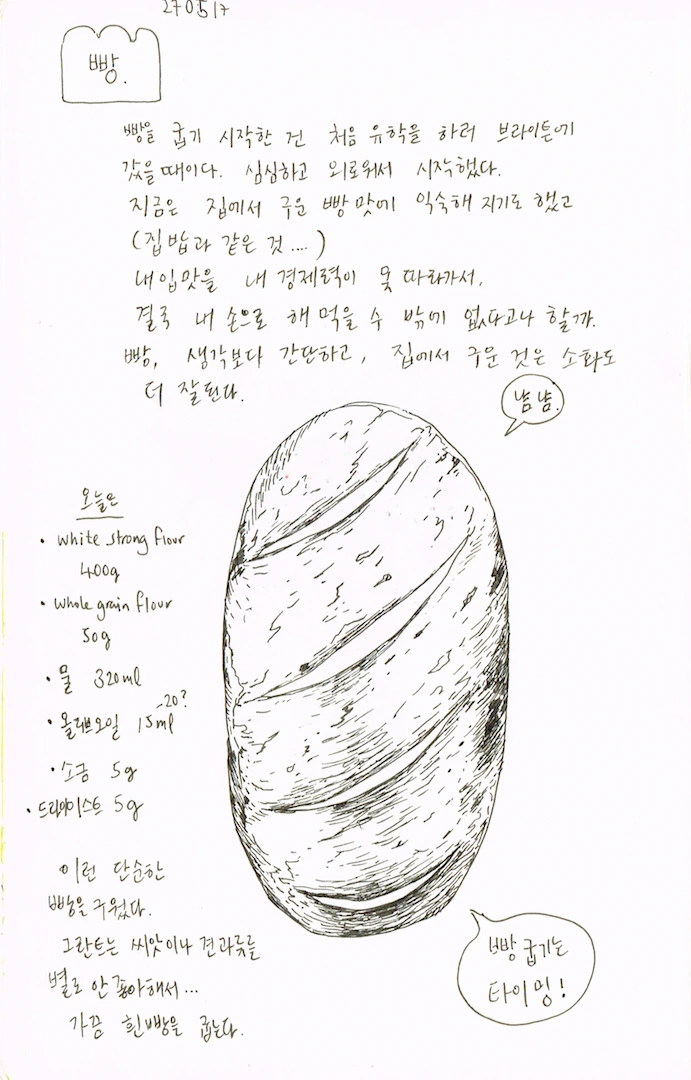 270517
빵.
빵을 굽기 시작한 건 처음 유학을 하러 브라이튼에
갔을때이다. 심심하고 외로워서 시작했다.
지금은 집에서 구운 빵 맛에 익숙해 지기도 했고
(집밥과 같은 것....)
내입맛을 내 경제력이 못 따라가서,
결국 내 손으로 해 먹을 수 밖에 없다고나 할까.
빵, 생각보다 간단하고, 집에서 구운 것은 소화도
더 잘된다.
냠냠.
오늘은
• white strong flour
400g
• whole grain flour
50g
• 물 320ml
• 올리브오일 15ml -20?
• 소금 5g
• 드라이이스트 5g
이런 단순한
빵을 구웠다.
그란트는 씨앗이나 견과류를
별로 안 좋아해서...
가끔 흰빵을 굽는다.
빵 굽기는
타이밍!